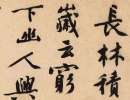 長林積
嵗云窮
下幽人興